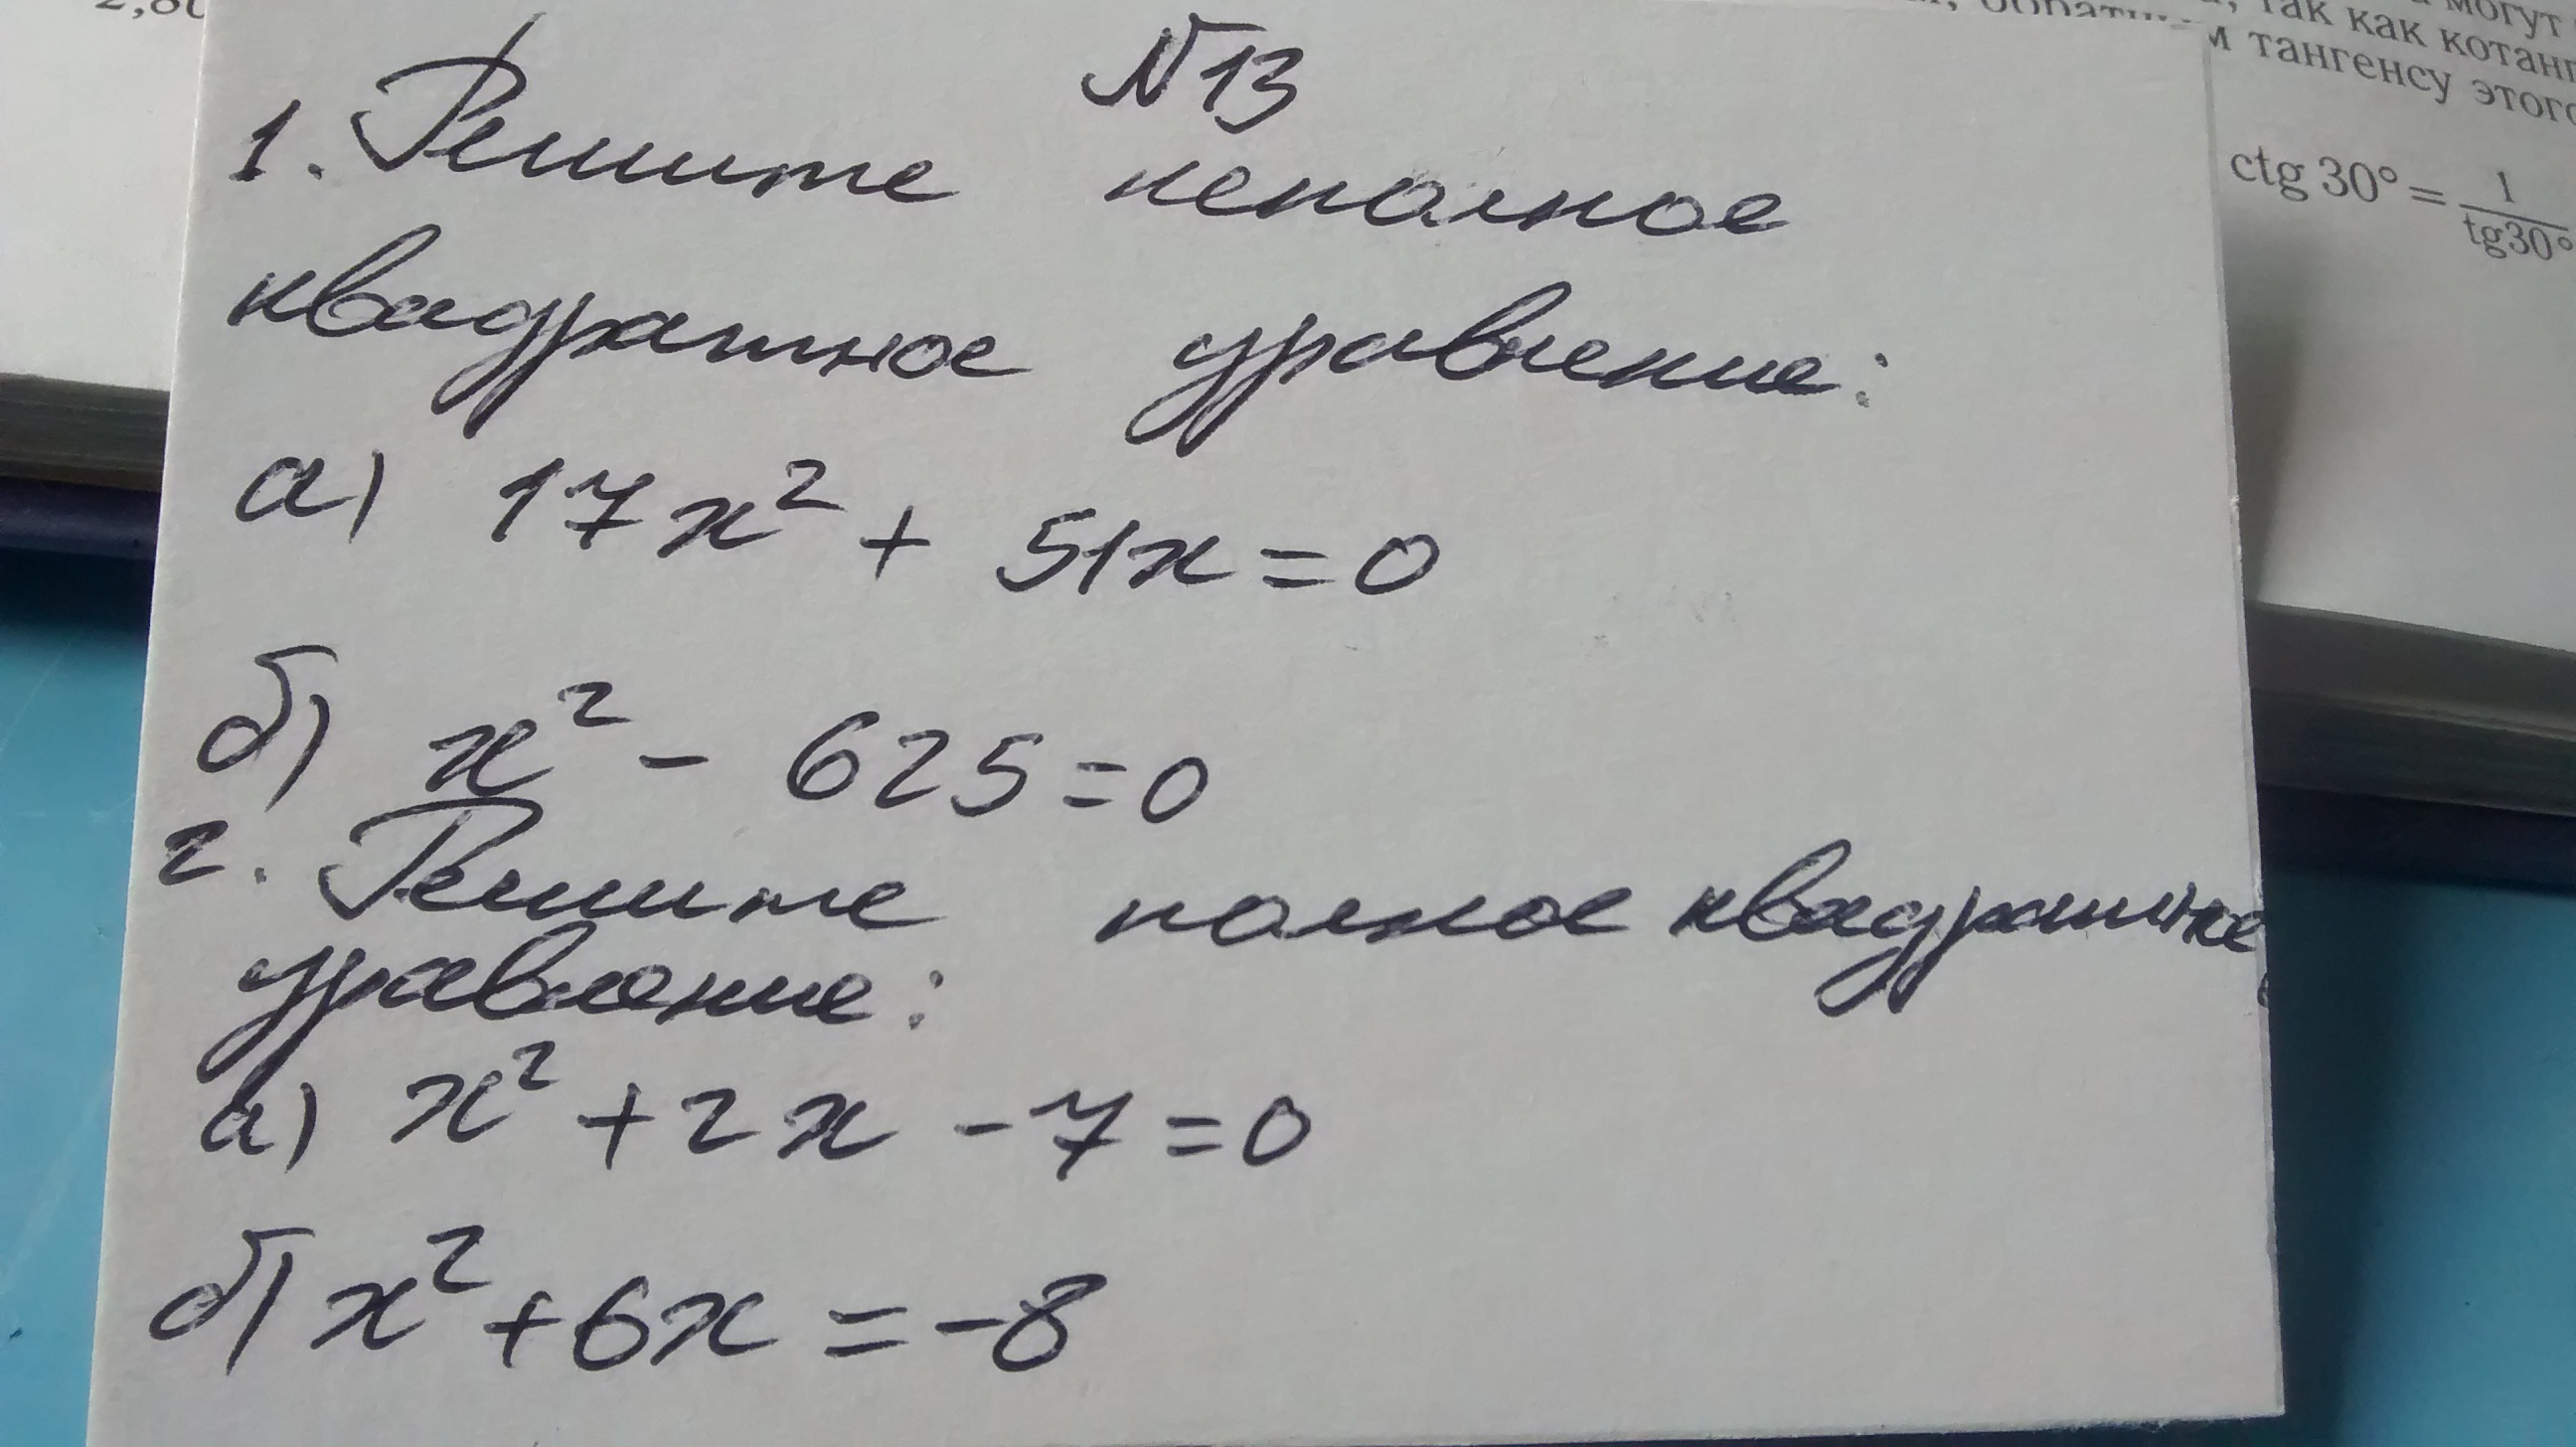 2,80
могут
, так как котанг
м тангенсу этого
ctg 30° = 1/tg30°
N13
1. Решите неполное
квадратное уравнение:
а) 17x² + 51x = 0
б) x² - 625 = 0
2. Решите полное квадратное
уравнение:
а) x² + 2x - 7 = 0
б) x² + 6x = -8